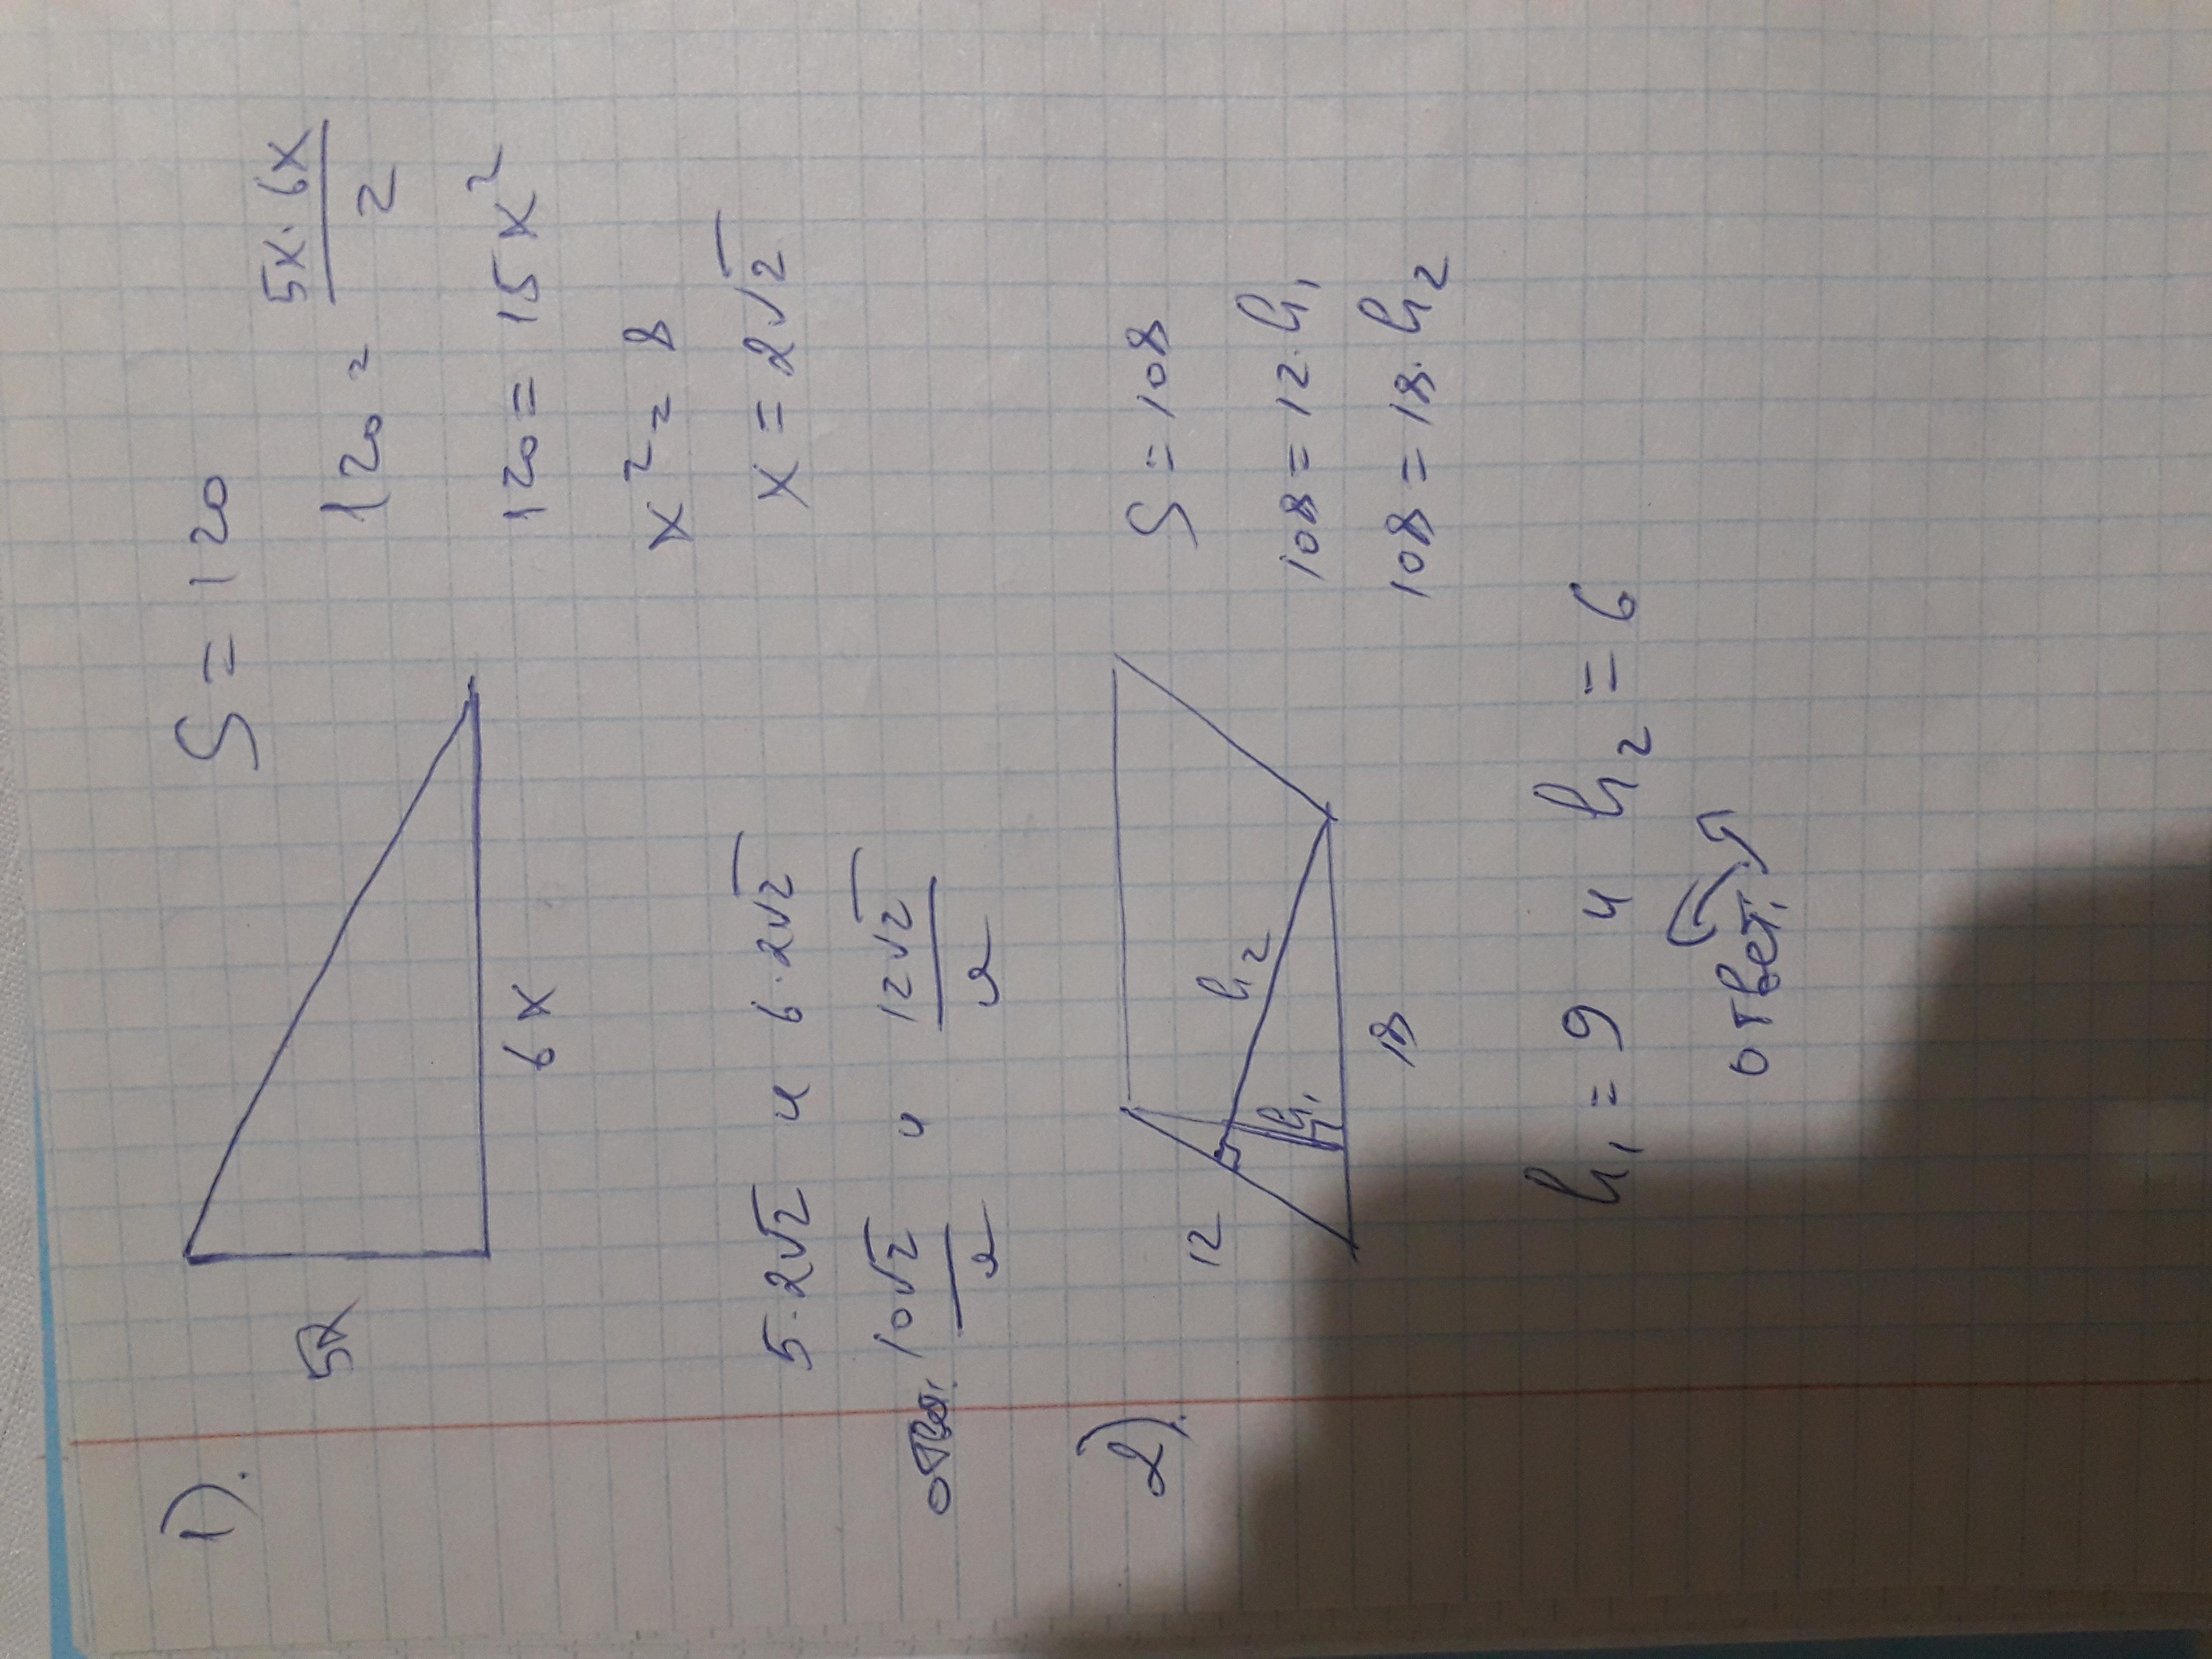 1).
S = 120
5x
6x
120 = 5x · 6x / 2
120 = 15x²
x² = 8
x = 2√2
5·2√2 и 6·2√2
10√2 и 12√2
2).
12
h₂
h₁
18
S = 108
108 = 12·h₁
108 = 18·h₂
h₁ = 9 и h₂ = 6
ответ: